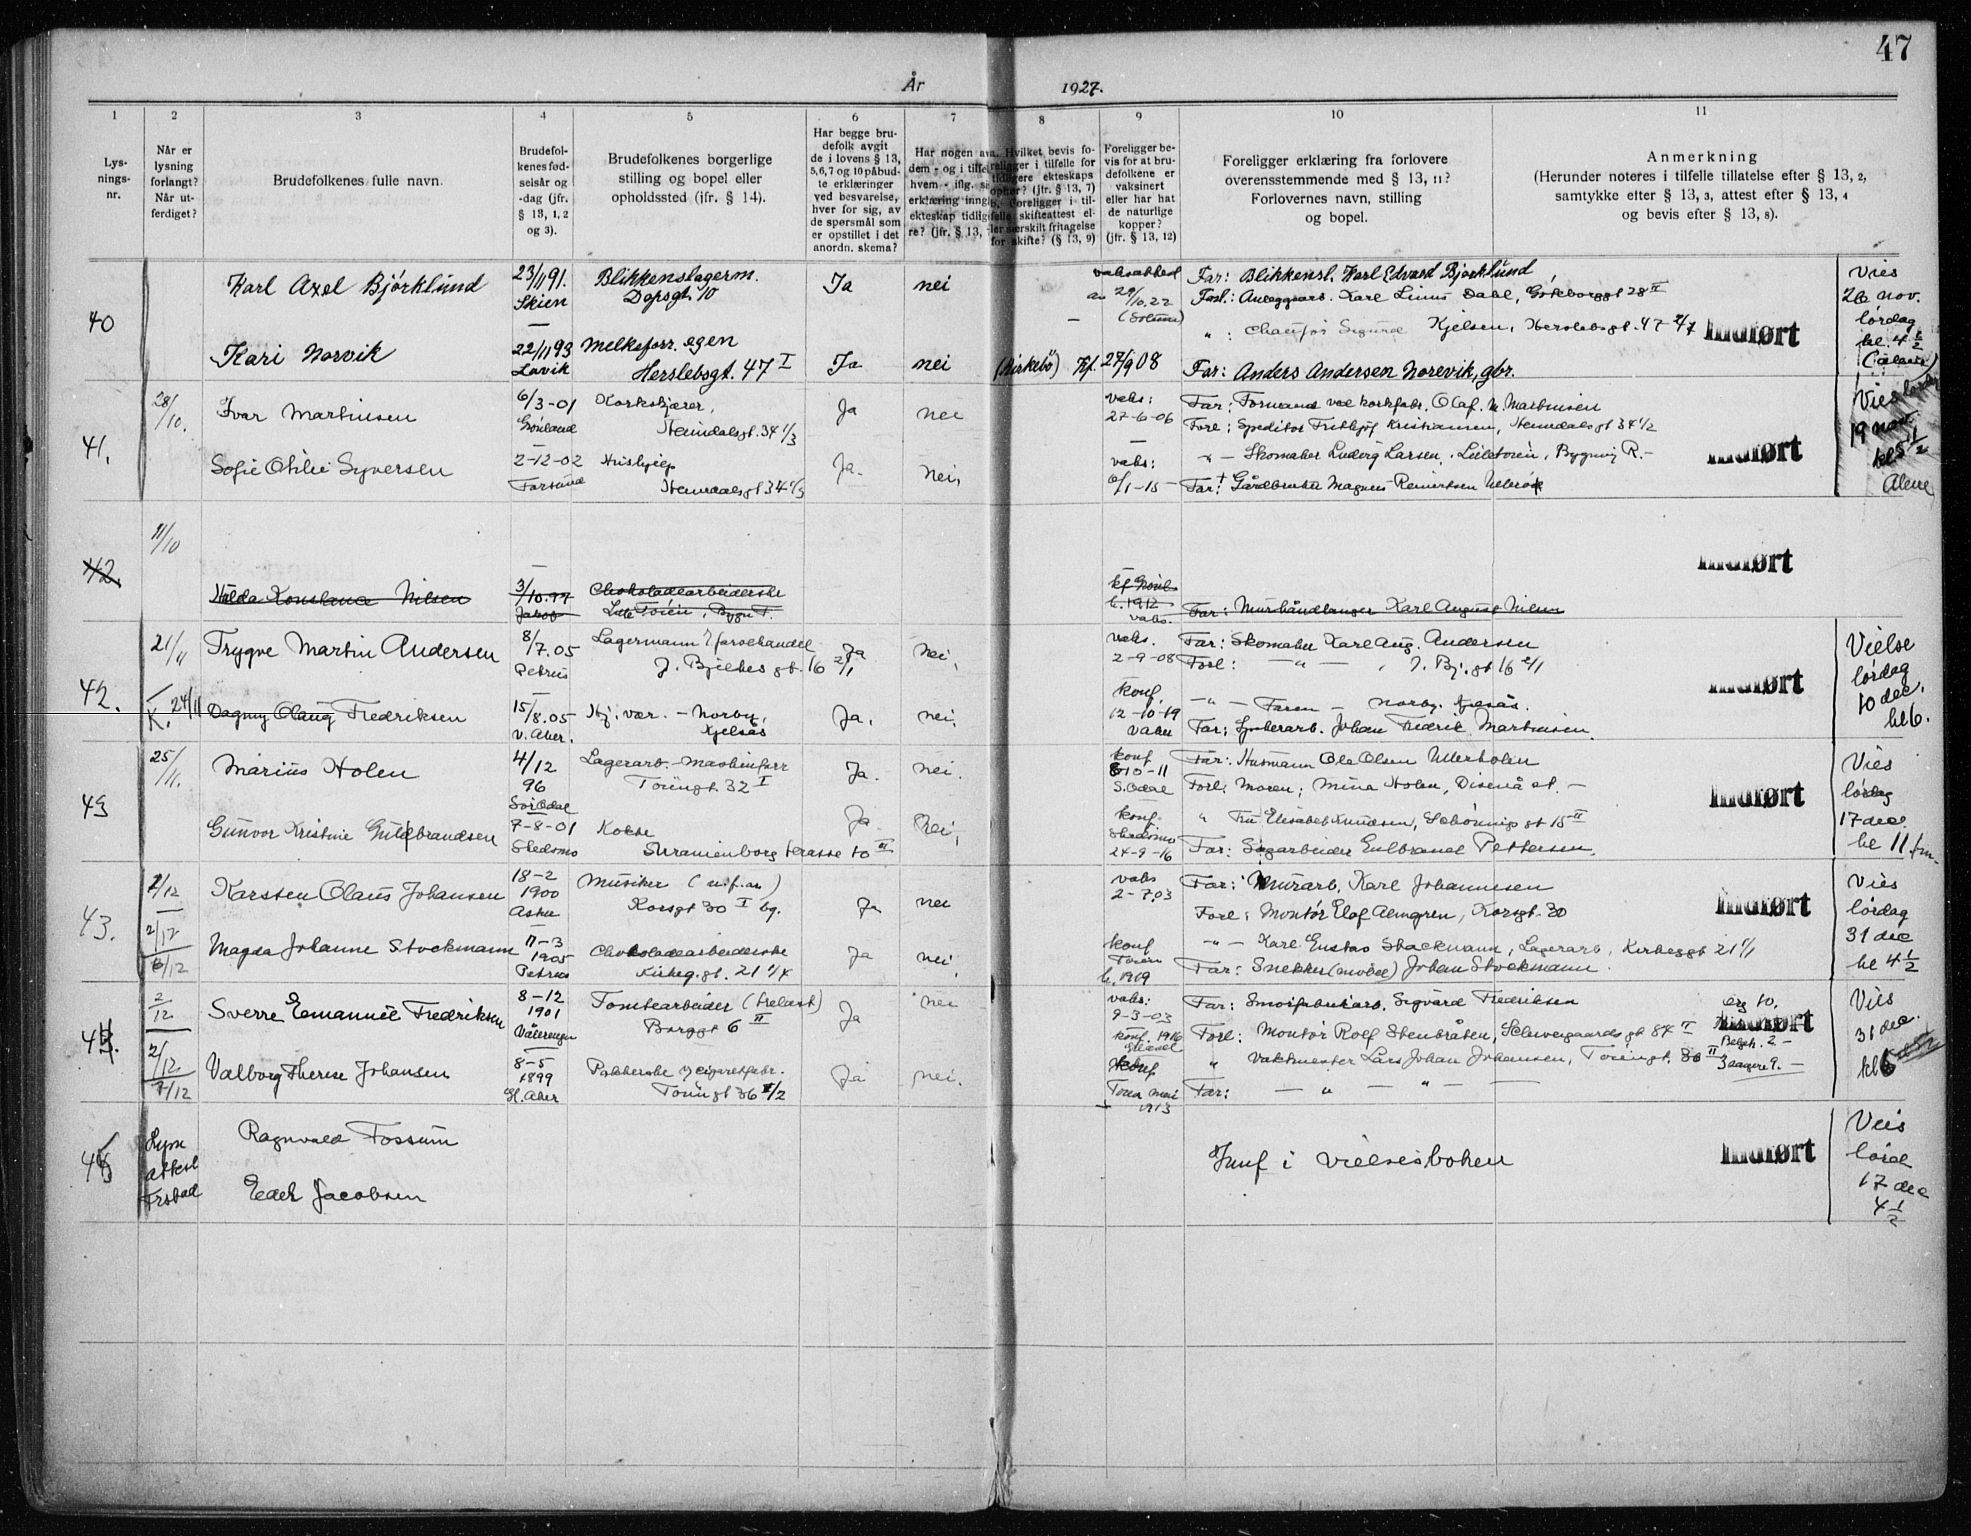 47
År 1927.
1 2 3 4 5 6 7 8 9 10 11
Lys-
nings-
nr.
Når er
lysning
forlangt?
Når ut-
ferdiget?
Brudefolkenes fulle navn.
Brudefol-
kenes fød-
selsår og
-dag (jfr.
§ 13, 1, 2
og 3).
Brudefolkenes borgerlige
stilling og bopel eller
opholdssted (jfr. § 14).
Har begge bru-
defolk avgit
de i lovens § 13,
5, 6, 7 og 10 påbud-
te erklæringer
ved besvarelse,
hver for sig, av
de spørsmål som
er opstillet i det
anordn. skema?
Har nogen av
dem - og i tilfelle
hvem - iflg.
erklæring inngå
ekteskap tidlig
re? (jfr. § 13,
Hvilket bevis fo-
religger i tilfelle for
tidligere ekteskaps
ophør? (jfr. § 13, 7)
Foreligger i til-
felle skifteattest el-
ler særskilt fritagelse
for skifte? (§ 13, 9)
Foreligger be-
vis for at bru-
defolkene er
vaksinert
eller har hat
de naturlige
kopper?
(jfr. § 13, 12)
Foreligger erklæring fra forlovere
overensstemmende med § 13, 11?
Forlovernes navn, stilling
og bopel.
Anmerkning
(Herunder noteres i tilfelle tillatelse efter § 13, 2,
samtykke efter § 13, 3, attest efter § 13, 4
og bevis efter § 13, 8).
40
Karl Axel Bjórklund
23/11 91.
Skien
Blikkenslagerm.
Dopsgt. 10
Ja
nei
29/10.22
(Solum)
Far: Blikkensl. Karl Edvard Bjórklund,
Forl: Anleggsarb. Karl Linus Dahl, Góteborggt 28 II
" : Chaufór Sigurd Kjelsen, Herslebsgt. 47 2/7
Indført
Vies
26 nov.
lórdag
kl. 4 1/2
(alene)
Kari Norvik
22/11 93
Lavik
Melkeforr. egen
Herslebsgt. 47 I
Ja
nei
(Kirkebö) Kf. 27/9 08
Far: Anders Andersen Norevik, gbr.
41.
28/10.
Ivar Martinsen
6/3-01
Grönland
Korkskjærer,
Heimdalsgt. 34 1/3
Ja
nei
vaks:
27-6-06
Far: Formand ved korkfabr. Olaf. M. Martinsen
Forl: Speditór Fritkjof Kristiansen, Heimdalsgt 34 1/2
Vies lórdag
19 nov.
kl 5 1/2
Alene
Sofie Otilie Syversen
2-12-02
Farsund
Hushjelp
Heimdalsgt 34 1/3
Ja.
Nei,
vaks:
6/1-15
" - Skomaker Ludvig Larsen, Lilletóien, Bygning R.-
Far: + Gårdbruker Magnus Reinertsen
Indført
42.
11/10
Hilda Konstance Nilsen
3/10.97
Jakob
Chokoladearbeiderske
Lille Tóien, Bygn F.
kf
h. 1912
vaks.
Far: Murhåndlanger Karl August Nilsen
Indført
42.
21/11
K. 24/11
Trygve Martin Andersen
8/7.05
Petrus
Lagermann i farvehandel
J. Bjelkes gt. 16 2/1
Ja
nei,
vaks.
2-9-08
Far: Skomaker Karl Aug. Andersen
Forl: - " - , J. Bj. gt 16 2/1
Indført
Vielse
lórdag
10 dec.
kl 6.
Dagny Olaug Fredriksen
15/8.05
V. Aker.
Hj. vær. - Norby,
Kjelsås
Ja.
nei,
konf.
12-10-19
V. Aker
- " - Faren - Norby, Kjelsås.
Far: Johan Fredrik Martinsen.
43
25/11.
Marius Holen
4/12
96
Sór Odal
Lagerarb. - maskinforr
Tóiengt. 32 I
Ja.
nei.
konf
8-10-11
S. Odal
Far: Husmann Ole Olsen Ullerholen
Forl: Moren; Mina Holen, Disenå st. -
Indført
Vies
lórdag
17 dec
kl 11 fm.
Gunvor Kristine Guldbrandsen
7-8-01
Skedsmo
Kokke
Uranienborg terasse 10 III
Ja
Nei,
konf
Skedsmo
24-9-16
" Fru Elisabet Knudsen, Schónings gt 15 II
Far: Sagarbeider Gulbrand Pettersen.
43.
2/12
2/12
6/12
Karsten Olaus Johansen
18-2
1900
Asker
Musiker (u.f.m)
Korsgt 30 I bg.
Ja
nei
vaks
2-7.03
Far: Murarb. Karl Johannesen
Forl: Montór Elof Almgren, Korsgt. 30
Indført
Vies
lórdag
31 dec
kl 4 1/2
Magda Johanne Stockmann
11-3
1905
Petrus
Chokoladearbeiderske
Kirkeg.gt. 21 1/4
Ja
nei,
konf
Tóien
h. 1919
- " - Karl Gustav Stockmann, Lagerarb, Kirkeggt 21 1/1
Far: Snekker (móbel) Johan Stockmann.
44.
2/12
2/12
7/12
Sverre Emanuel Fredriksen
8-12
1901
Vålerengen
Tomtearbeider (trelast)
Borggt 6 II
Ja
nei
vaks:
9-3-03
konf. 1916
Far: Smórfabrikarb. Sigvard Fredriksen
Forl: Montór Rolf Stenbråten, Schweigaards gt 84 I
org 10.
Indført
Belysn. 2 -
3 sangere 9. -
Vies
31 dec.
kl 6
Valborg Therese Johansen
8-5
1899
Gl. Aker
Pakkerske i cigaretfabr.
Tóiengt 36 1/2
Ja
nei.
konf
Tóien mai
1913
" Vaktmester Lars Johan Johansen, Tóiengt. 36 II
Far: - " - " -
45
Lysn
attest
Ragnvald Fossum
Edel Jacobsen
Innf i vielsesboken
Indført
Vies
lórd
17 dec
4 1/2